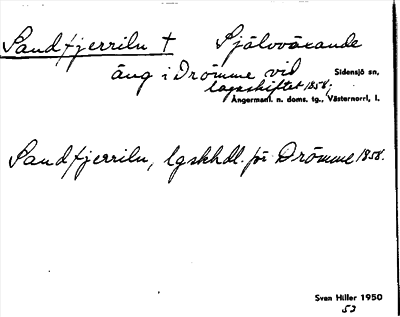 Sandfjerriln † Självväxande
äng i Drömme vid Sidensjö sn,
lagaskiftet 1858;
Ångermanl. n. doms. tg., Västernorrl, l.
Sandfjerriln, lgskhdl. för Drömme 1858.
Sven Hiller 1950
53